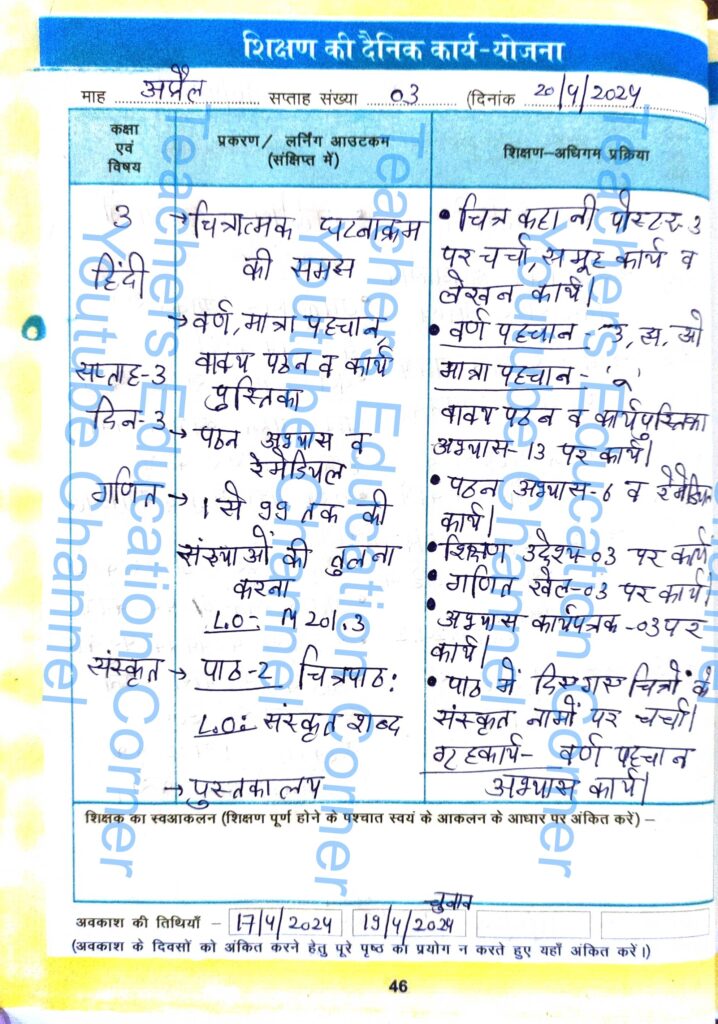 शिक्षण की दैनिक कार्य-योजना
माह अप्रैल सप्ताह संख्या 03 (दिनांक 20/4/2024
कक्षा एवं विषय
प्रकरण/ लर्निंग आउटकम (संक्षिप्त में)
शिक्षण-अधिगम प्रक्रिया
3
हिंदी
सप्ताह-3
दिन-3
→ चित्रात्मक घटनाक्रम
की समझ
→ वर्ण, मात्रा पहचान,
वाक्य पठन व कार्य
पुस्तिका
→ पठन अभ्यास व
रेमैडियल
• चित्र कहानी पोस्टर-3
पर चर्चा, समूह कार्य व
लेखन कार्य।
• वर्ण पहचान - उ, झ, ओ
मात्रा पहचान -
वाक्य पठन व कार्यपुस्तिका
अभ्यास-13 पर कार्य।
• पठन अभ्यास-6 व रेमैडियल
कार्य।
गणित
→ 1 से 99 तक की
संख्याओं की तुलना
करना
L.O:- M 201.3
• शिक्षण उद्देश्य-03 पर कार्य
• गणित खेल-03 पर कार्य।
• अभ्यास कार्यपत्रक-03 पर
कार्य।
संस्कृत
→ पाठ-2 चित्रपाठ:
L.O: संस्कृत शब्द
→ पुस्तकालय
• पाठ में दिए गए चित्रों के
संस्कृत नामों पर चर्चा।
गृहकार्य- वर्ण पहचान
अभ्यास कार्य।
शिक्षक का स्वआकलन (शिक्षण पूर्ण होने के पश्चात स्वयं के आकलन के आधार पर अंकित करें) –
चुनाव
अवकाश की तिथियाँ – 17/4/2024 19/4/2024
(अवकाश के दिवसों को अंकित करने हेतु पूरे पृष्ठ का प्रयोग न करते हुए यहाँ अंकित करें।)
46
Teachers Education Corner
Youtube Channel
Teachers Education Corner
Youtube Channel
Teachers Education Corner
Youtube Channel